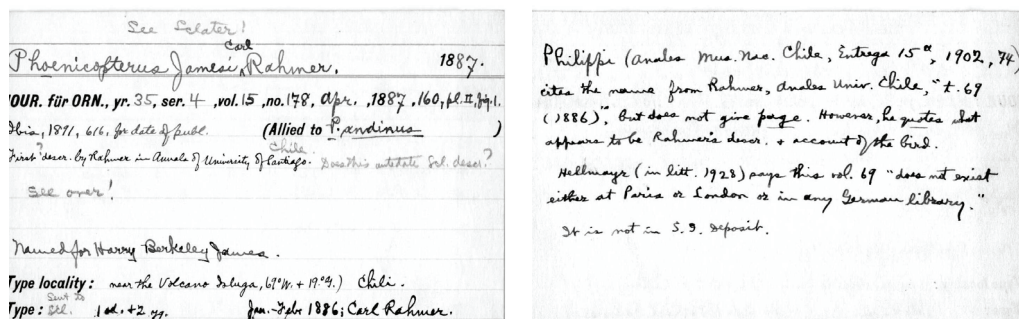 See Sclater!
Carl
Phoenicopterus Jamesi, Rahmer. 1887.
JOUR. für ORN., yr. 35, ser. 4, vol. 15, no. 178, Apr., 1887, 160, pl. II, fig. 1.
Ibis, 1891, 616, for date of publ. (Allied to P. andinus )
Chile
First? descr. by Rahmer in Annals of University of Santiago. Does this antedate Scl. descr.?
See over!
Named for Harry Berkeley James.
Type locality: near the Volcano Isluga, 69°W. + 19°S.) Chili.
Sent to
Type: Scl. 1 ad. + 2 yg. Jan.-Feb. 1886; Carl Rahmer.
Philippi (Anales Mus. Nac. Chile, Entrega 15ª, 1902, 74)
cites the name from Rahmer, Anales Univ. Chile, "t. 69
(1886), but does not give page. However, he quotes what
appears to be Rahmer's descr. + account of the bird.
Hellmayr (in litt. 1928) says this vol. 69 "does not exist
either at Paris or London or in any German library."
It is not in S.I. Deposit.